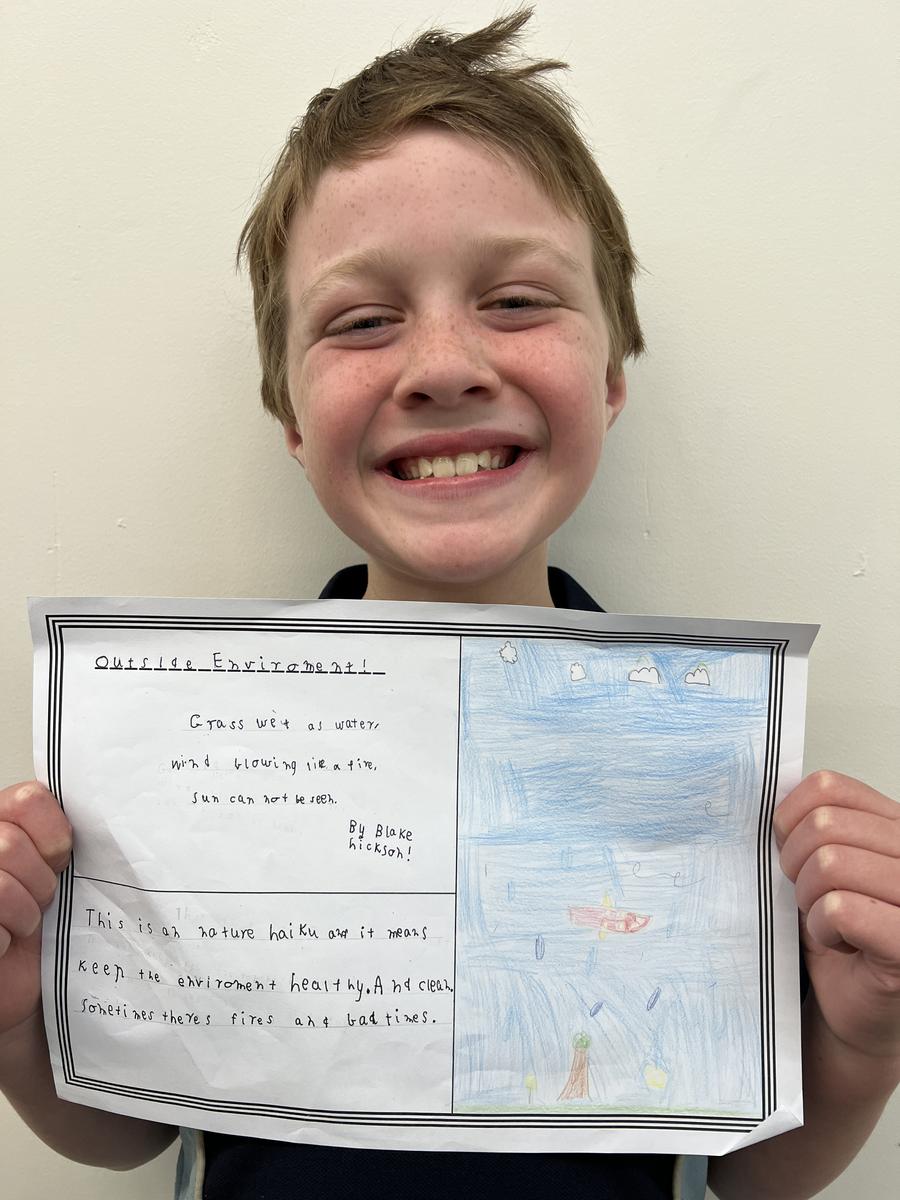 Outside Enviroment!
Grass wet as water,
wind blowing like a fire,
sun can not be seen.
By Blake
hickson!
This is an nature haiku and it means
keep the enviroment healthy. And clean.
Sometimes theres fires and bad times.